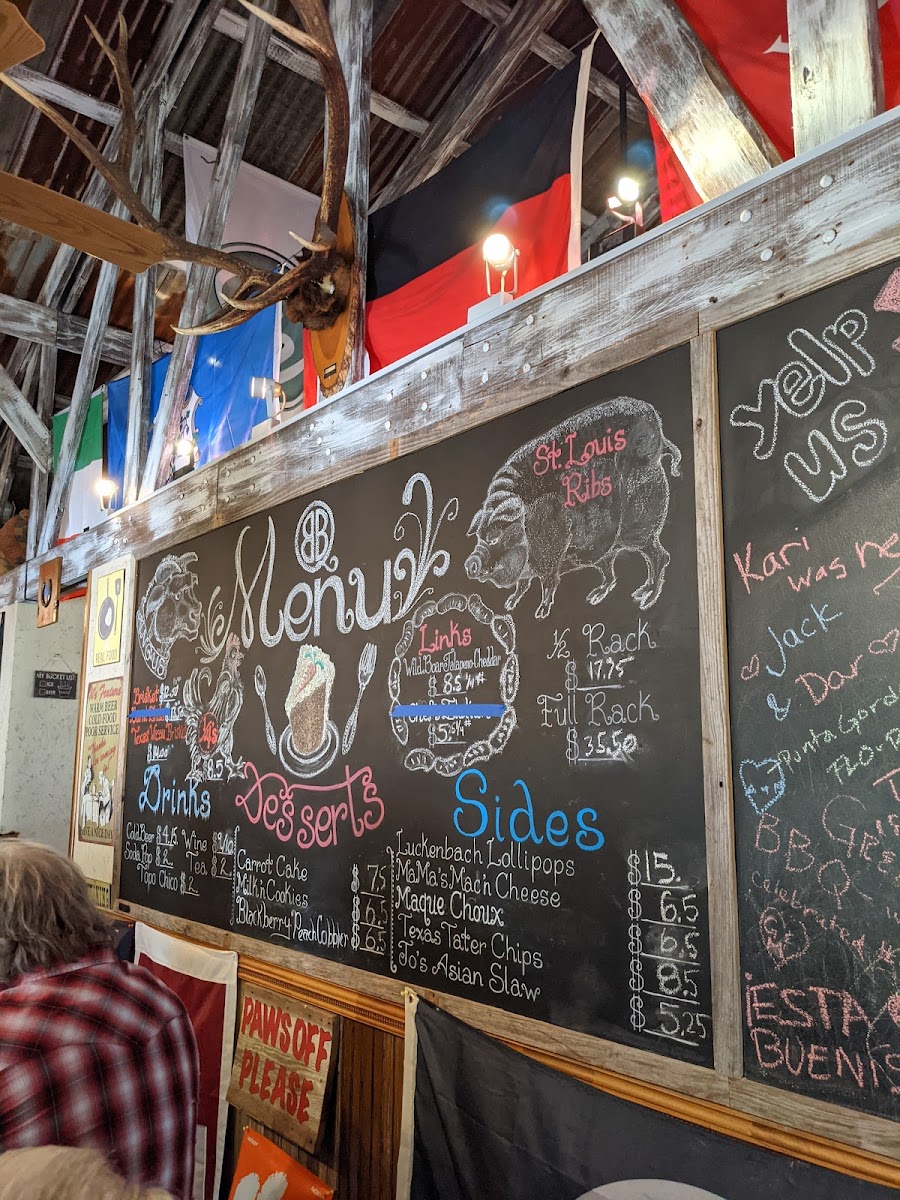 BB
Menu
St. Louis
Ribs
½ Rack
$ 17.75
Full Rack
$ 35.50
Links
Wild Boar & Jalapeno-Cheddar
$ 8.5
$ 5
Brisket
¼'s
$ 8.5
Drinks
Cold Beer $ 4.15 Wine
Soda Pop $ 2. Tea $ 2
Topo Chico $ 2.
Desserts
Carrot Cake $ 7.5
Milk n Cookies $ 6.5
Blackberry Peach Cobbler $ 6.5
Sides
Luckenbach Lollipops $ 15.
MaMa's Mac n Cheese $ 6.5
Maque Choux $ 6.5
Texas Tater Chips $ 8.5
Jo's Asian Slaw $ 5.25
yelp
us
Kari
was he
Jack
&
Dar
Punta Gord
BB
ESTA
BUENI
REAL FOOD
We Feature
WARM BEER
COLD FOOD
POOR SERVICE
HAVE A NICE DAY
MY BUCKET LIST
ICE
BEER
PAWS OFF
PLEASE